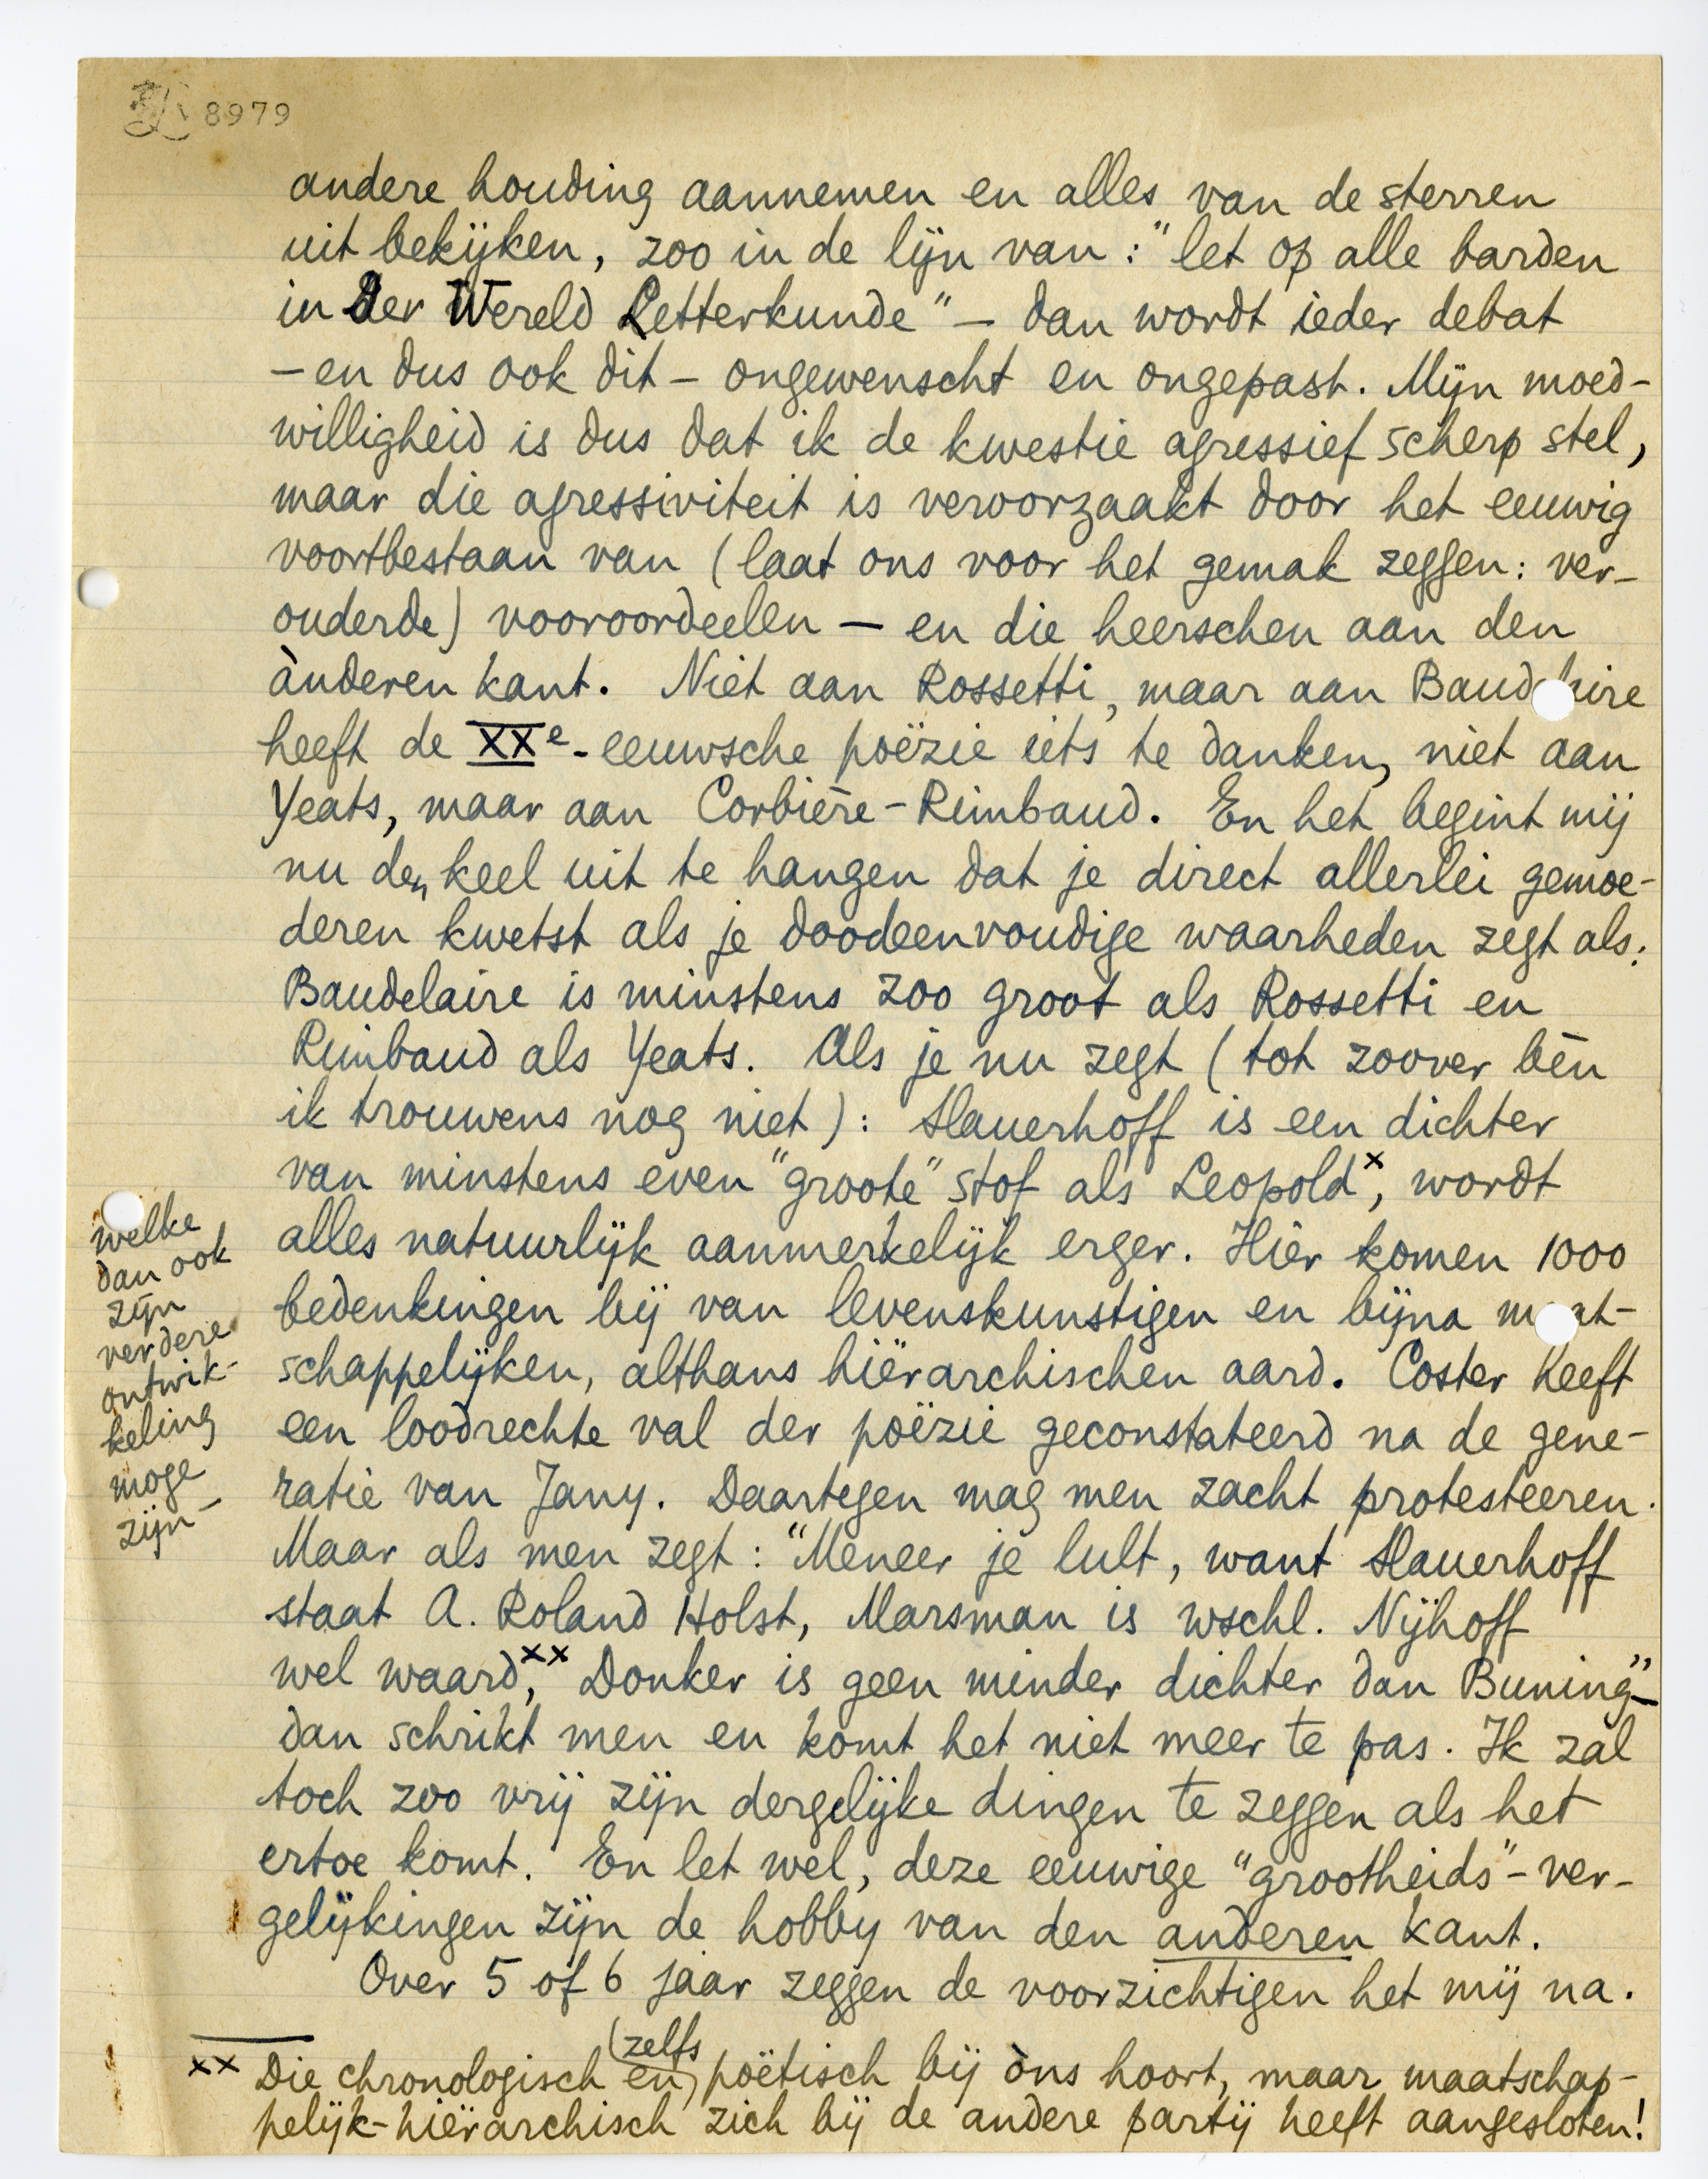 8979
andere houding aannemen en alles van de sterren
uit bekijken, zoo in de lijn van: "let op alle barden
in der Wereld Letterkunde" — dan wordt ieder debat
— en dus ook dit — ongewenscht en ongepast. Mijn moed-
willigheid is dus dat ik de kwestie agressief scherp stel,
maar die agressiviteit is veroorzaakt door het eeuwig
voortbestaan van (laat ons voor het gemak zeggen: ver-
ouderde) vooroordeelen — en die heerschen aan den
ànderen kant. Niet aan Rossetti, maar aan Baudelaire
heeft de XXe-eeuwsche poëzie iets te danken, niet aan
Yeats, maar aan Corbière-Rimbaud. En het begint mij
nu den keel uit te hangen dat je direct allerlei gemoe-
deren kwetst als je doodeenvoudige waarheden zegt als:
Baudelaire is minstens zoo groot als Rossetti en
Rimbaud als Yeats. Als je nu zegt (tot zoover bèn
ik trouwens nog niet): Slauerhoff is een dichter
van minstens even "groote" stof als Leopold x, wordt
alles natuurlijk aanmerkelijk erger. Hier komen 1000
bedenkingen bij van levenskunstigen en bijna maat-
schappelijken, althans hiërarchischen aard. Coster heeft
een loodrechte val der poëzie geconstateerd na de gene-
ratie van Jany. Daartegen mag men zacht protesteeren.
Maar als men zegt: "Meneer je lult, want Slauerhoff
staat A. Roland Holst, Marsman is wschl. Nijhoff
wel waard, xx Donker is geen minder dichter dan Buning" —
dan schrikt men en komt het niet meer te pas. Ik zal
toch zoo vrij zijn dergelijke dingen te zeggen als het
ertoe komt. En let wel, deze eeuwige "grootheids"-ver-
gelijkingen zijn de hobby van den anderen kant.
Over 5 of 6 jaar zeggen de voorzichtigen het mij na.
welke
dan ook
zijn
verdere
ontwik-
keling
moge
zijn —
xx Die chronologisch en (zelfs) poëtisch bij òns hoort, maar maatschap-
pelijk-hiërarchisch zich bij de andere partij heeft aangesloten!